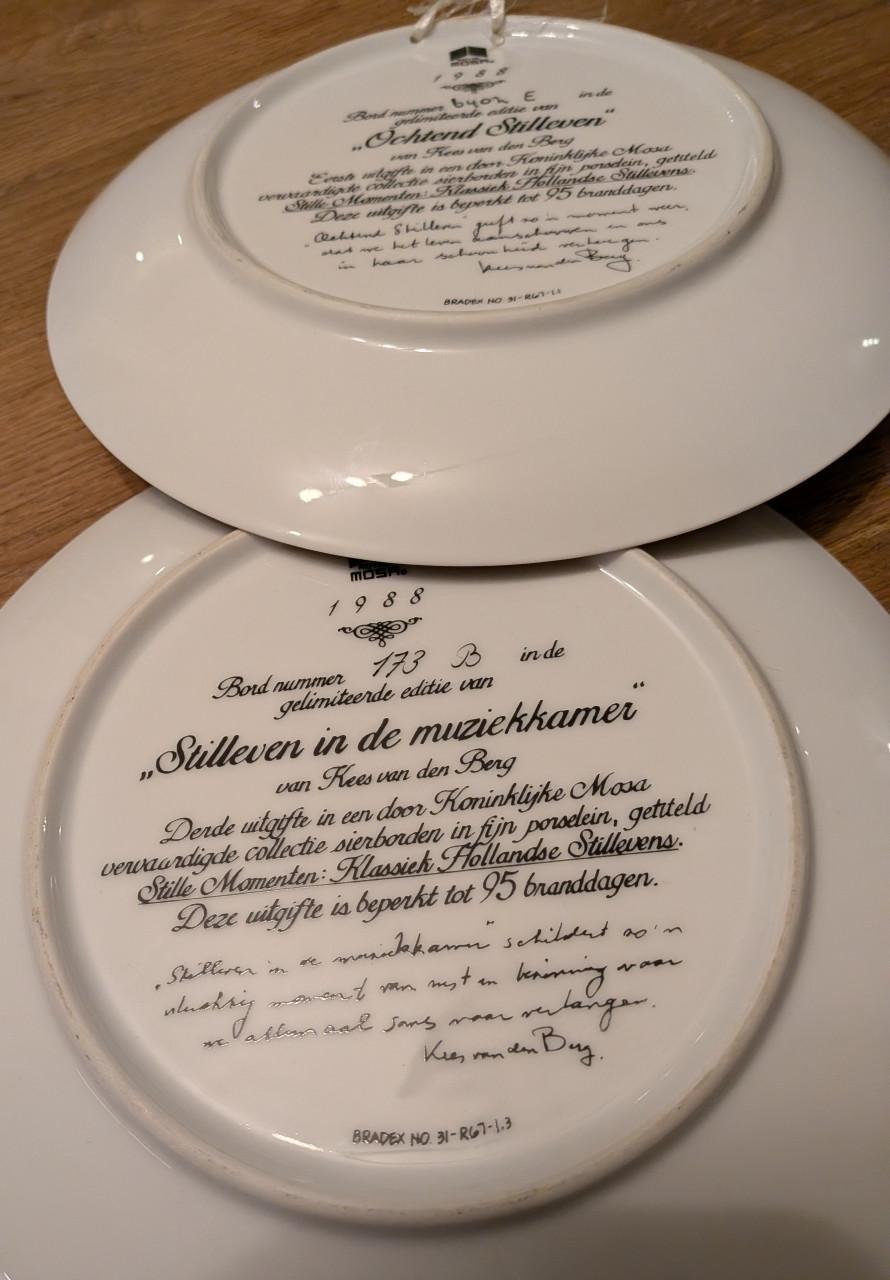 MOSA
1988
Bord nummer 6402 E in de
gelimiteerde editie van
„Ochtend Stilleven“
van Kees van den Berg
Eerste uitgifte in een door Koninklijke Mosa
vervaardigde collectie sierborden in fijn porselein, getiteld
Stille Momenten: Klassiek Hollandse Stillevens.
Deze uitgifte is beperkt tot 95 branddagen.
„Ochtend Stilleven“ geeft zo'n moment weer,
dat we het leven aanschouwen en ons
in haar schoonheid verheugen.
Kees van den Berg.
BRADEX NO. 31-R67-1.1
MOSA
1988
Bord nummer 173 B in de
gelimiteerde editie van
„Stilleven in de muziekkamer“
van Kees van den Berg
Derde uitgifte in een door Koninklijke Mosa
vervaardigde collectie sierborden in fijn porselein, getiteld
Stille Momenten: Klassiek Hollandse Stillevens.
Deze uitgifte is beperkt tot 95 branddagen.
„Stilleven in de muziekkamer“ schildert zo'n
vluchtig moment van rust en bezinning waar
we allemaal soms naar verlangen.
Kees van den Berg.
BRADEX NO. 31-R67-1.3